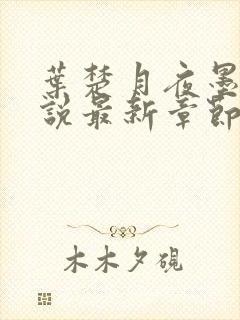 葉楚月夜墨
說最新章節
木木夕硯